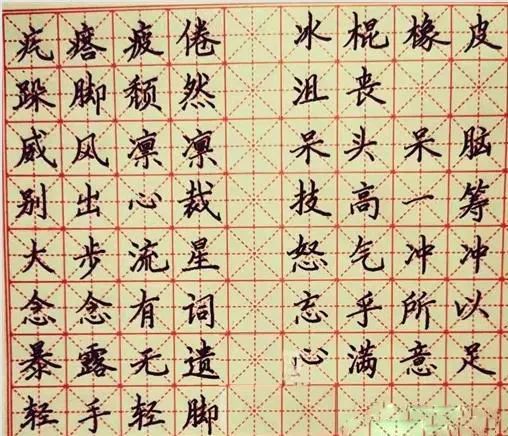 疙瘩疲倦 冰棍橡皮
跺脚颓然 沮丧
威风凛凛 呆头呆脑
别出心裁 技高一筹
大步流星 怒气冲冲
念念有词 忘乎所以
暴露无遗 心满意足
轻手轻脚